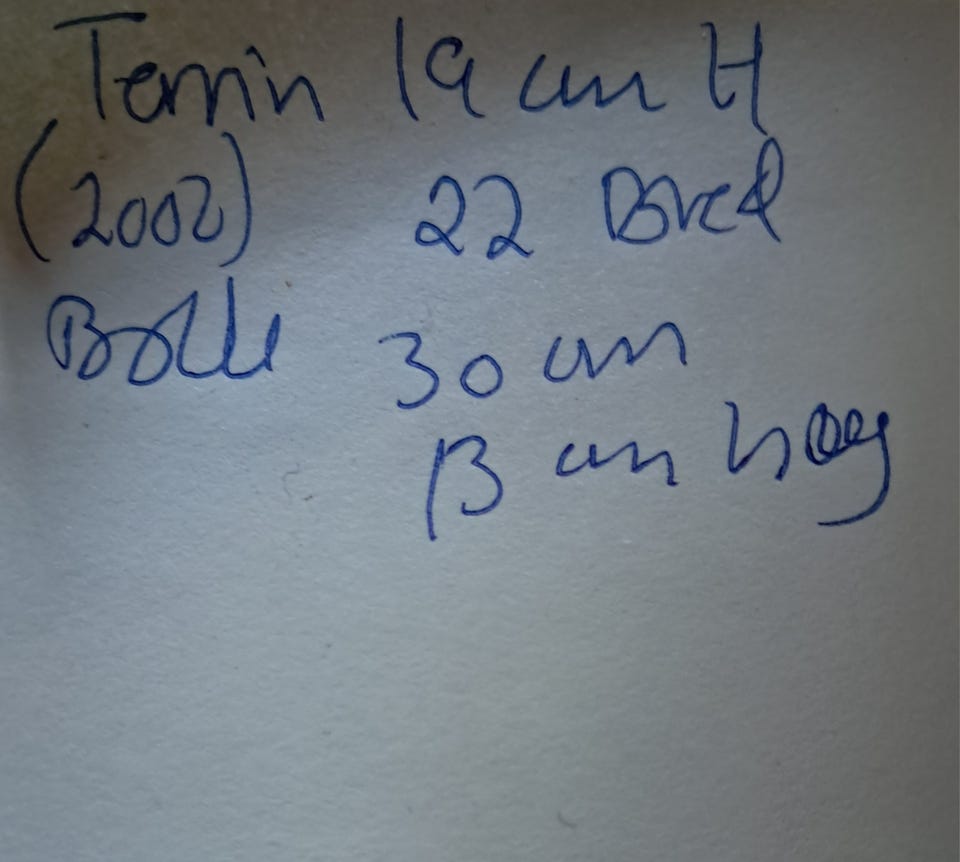 Terrin 19 cm H
(2002) 22 Bred
Bolle 30 cm
13 cm høy